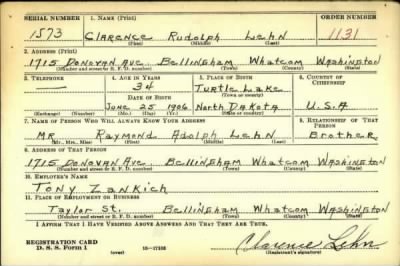 SERIAL NUMBER 1. NAME (Print) ORDER NUMBER
1573 CLARENCE RUDOLPH LEHN 1131
(First) (Middle) (Last)
2. ADDRESS (Print)
1715 DONOVAN AVE. BELLINGHAM WHATCOM WASHINGTON
(Number and street or R. F. D. number) (Town) (County) (State)
3. TELEPHONE 4. AGE IN YEARS 5. PLACE OF BIRTH 6. COUNTRY OF CITIZENSHIP
— 34 TURTLE LAKE
DATE OF BIRTH (Town or county)
JUNE 25 1906 NORTH DAKOTA U.S.A
(Exchange) (Number) (Mo.) (Day) (Yr.) (State or country)
7. NAME OF PERSON WHO WILL ALWAYS KNOW YOUR ADDRESS 8. RELATIONSHIP OF THAT PERSON
MR RAYMOND ADOLPH LEHN BROTHER
(Mr., Mrs., Miss) (First) (Middle) (Last)
9. ADDRESS OF THAT PERSON
1715 DONOVAN AVE. BELLINGHAM WHATCOM WASHINGTON
(Number and street or R. F. D. number) (Town) (County) (State)
10. EMPLOYER'S NAME
TONY ZANKICH
11. PLACE OF EMPLOYMENT OR BUSINESS
TAYLOR ST. BELLINGHAM WHATCOM WASHINGTON
(Number and street or R. F. D. number) (Town) (County) (State)
I AFFIRM THAT I HAVE VERIFIED ABOVE ANSWERS AND THAT THEY ARE TRUE.
REGISTRATION CARD
D. S. S. Form 1 (over) 16—17105 Clarence Lehn
(Registrant's signature)